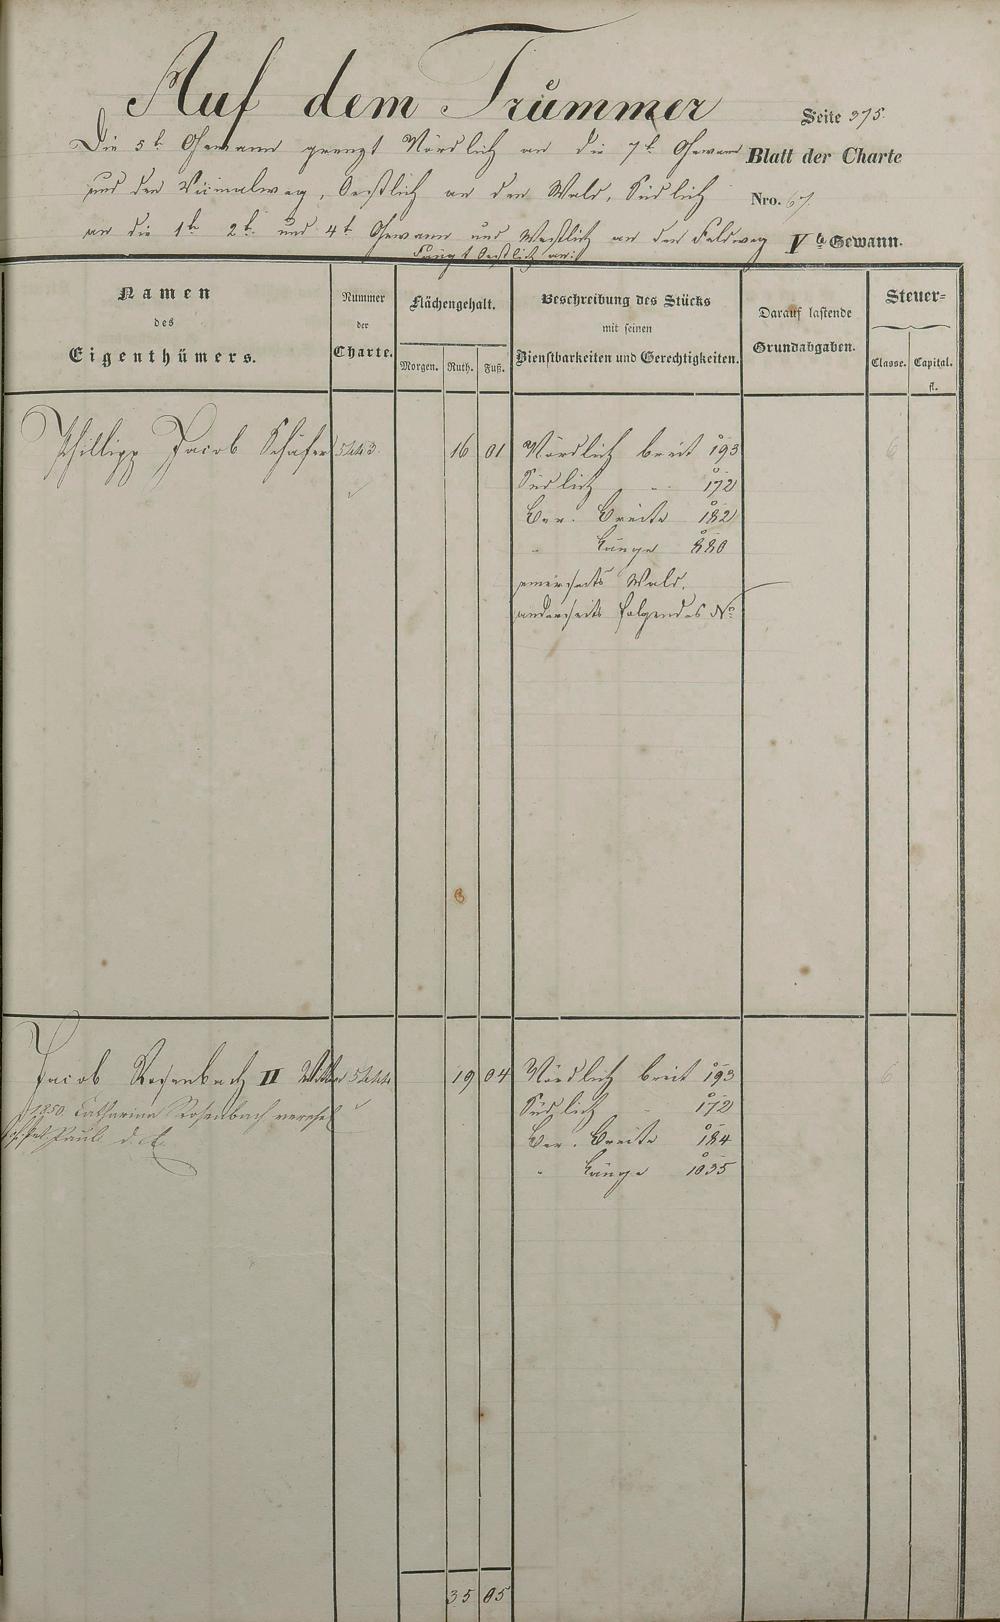 Auf dem Trümmer
Seite 375.
Die 5te Gewann grenzt Nördlich an die 7te Gewann
Blatt der Charte
und den Viehmalweg, Oestlich an den Wald, Südlich
Nro. 67.
an die 1te 2te und 4te Gewann und Westlich an den Feldweg
Vte Gewann.
Fängt Oestlich an:
Namen
des
Eigenthümers.
Nummer
der
Charte.
Flächengehalt.
Morgen. Ruth. Fuß.
Beschreibung des Stücks
mit seinen
Dienstbarkeiten und Gerechtigkeiten.
Darauf lastende
Grundabgaben.
Steuer-
Classe. Capital.
fl.
Phillipp Jacob Schäfer 5443. 16 01 Nördlich breit 193 6
Südlich " 172
Ver. Breite 182
" Länge 880
einerseits Wald,
anderseits folgendes No
Jacob Rosenbach II 5444 19 04 Nördlich breit 193 6
1850 Catharina Rosenbach verehel
Südlich " 172
Paul d. E.
Ver. Breite 184
" Länge 1035
35 05